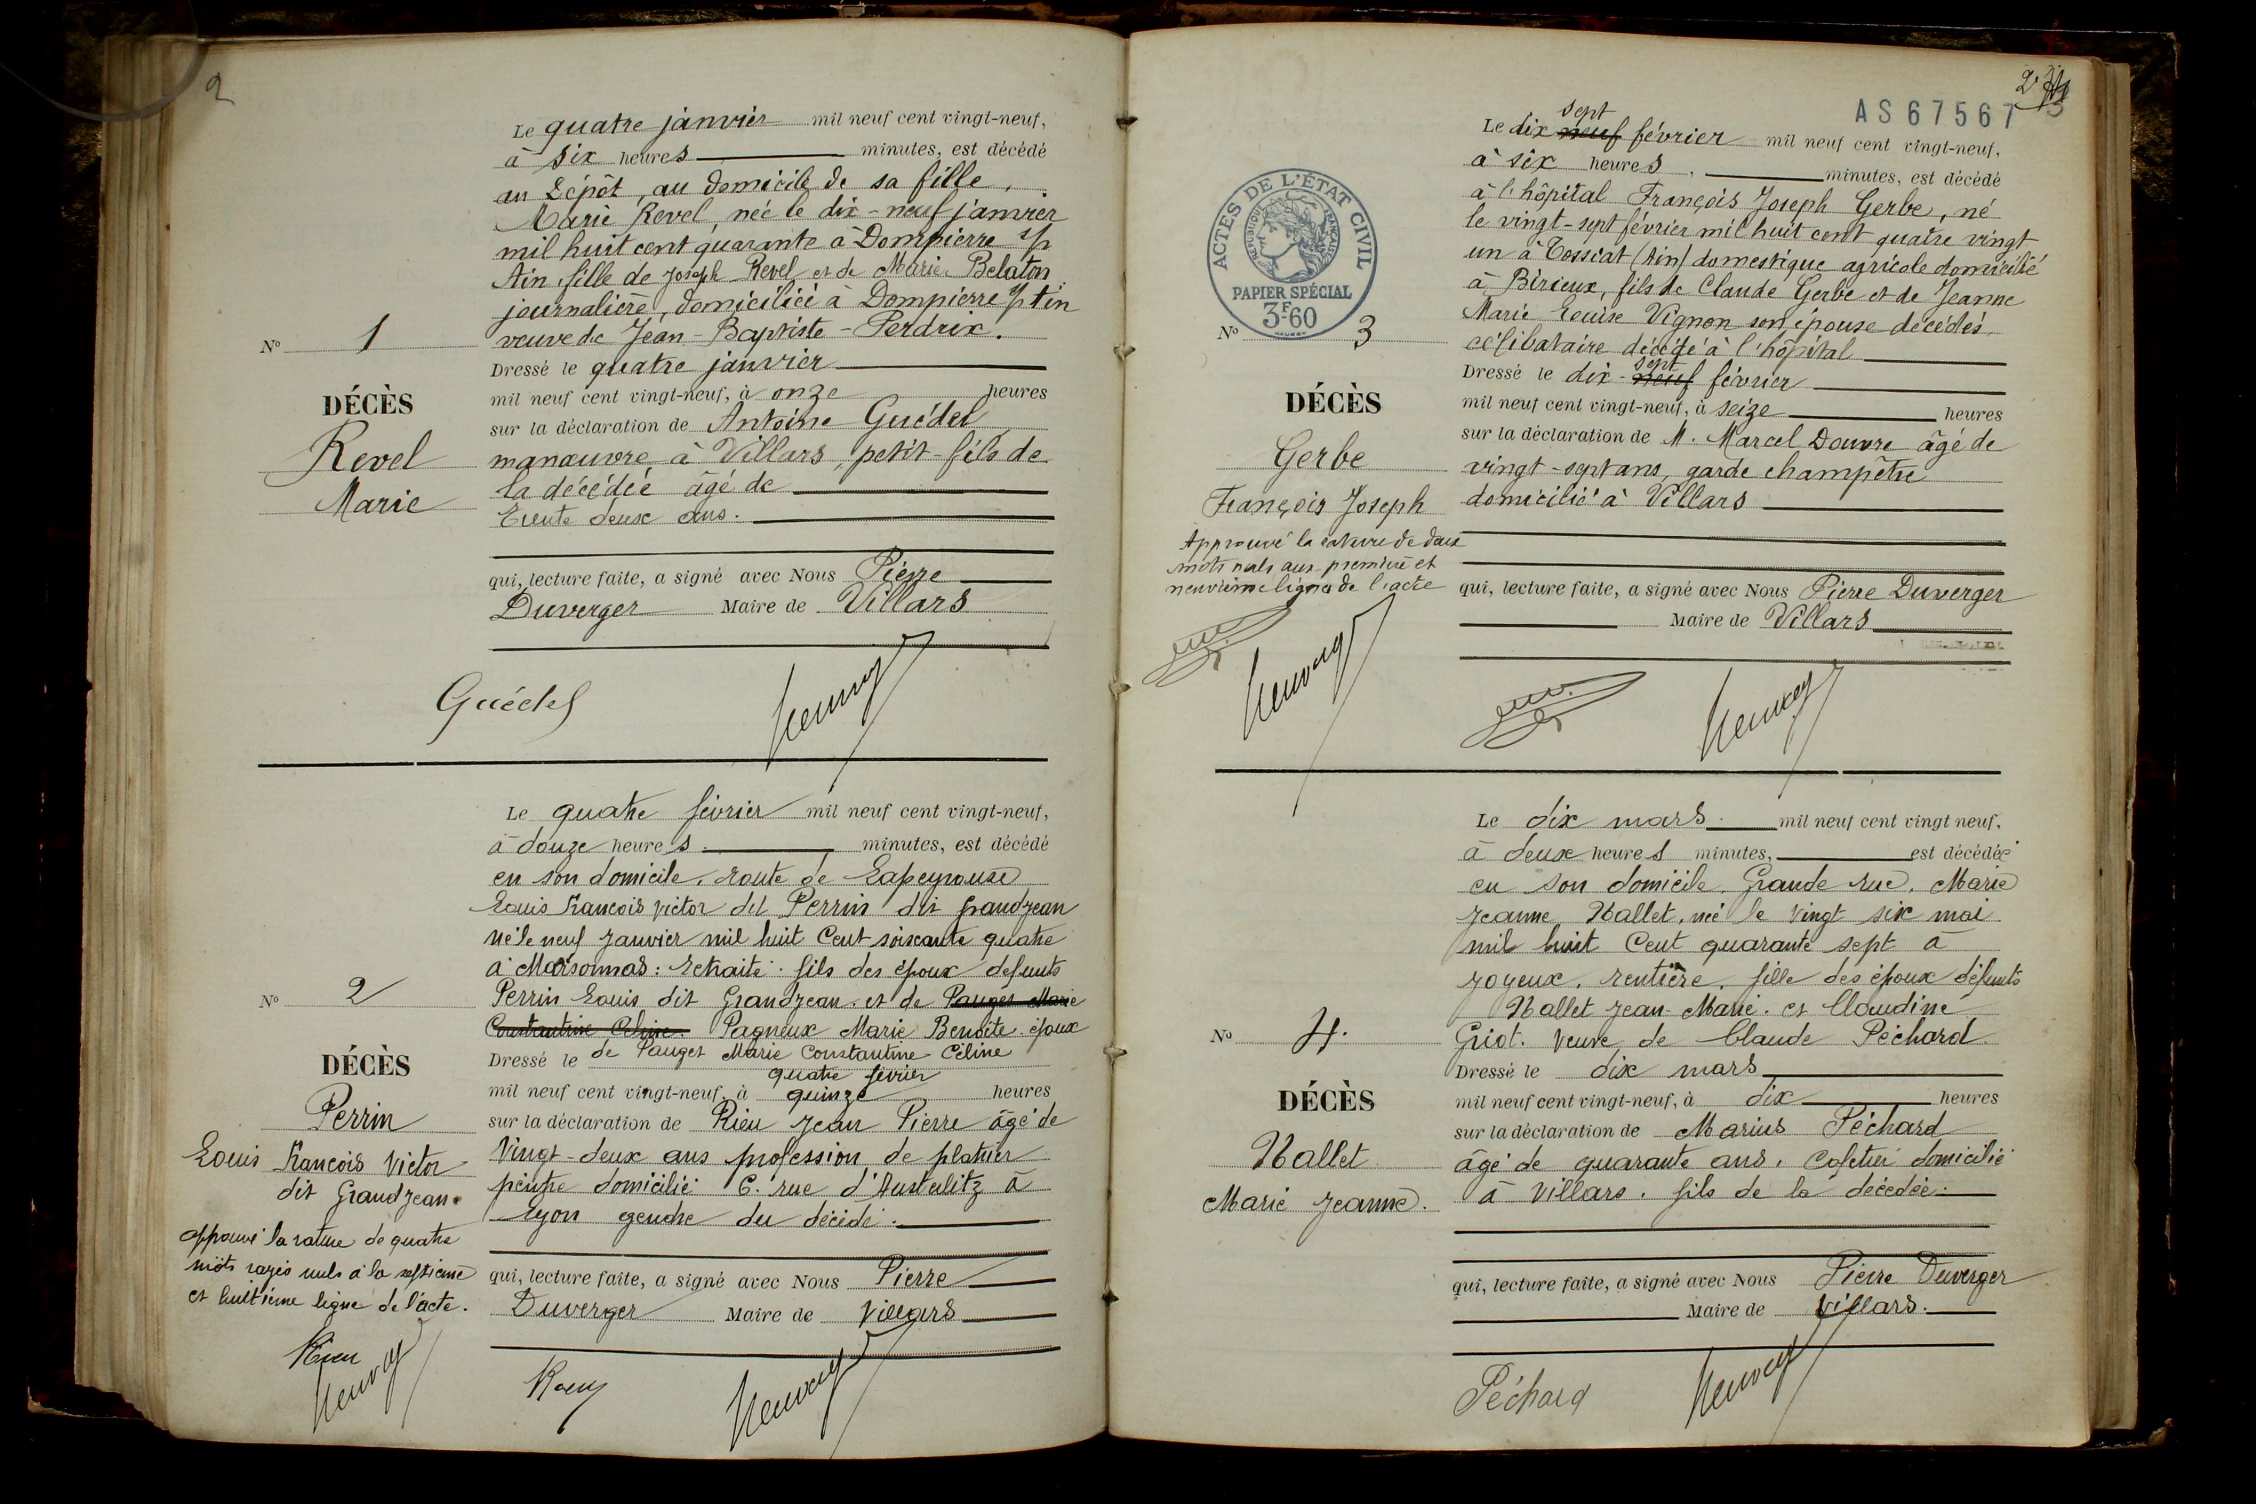 2
Le quatre janvier mil neuf cent vingt-neuf,
à six heures minutes, est décédé
au Dépôt, au domicile de sa fille,
Marie Revel, née le dix-neuf janvier
mil huit cent quarante à Dompierre s/
Ain, fille de Joseph Revel et de Marie Belaton
journalière, domiciliée à Dompierre s/ Ain
veuve de Jean-Baptiste-Perdrix.
Dressé le quatre janvier
mil neuf cent vingt-neuf, à onze heures
sur la déclaration de Antoine Guédel
manœuvre à Villars, petit-fils de
la décédée âgé de
trente deux ans.
qui, lecture faite, a signé avec Nous Pierre
Duverger Maire de Villars
No 1
DÉCÈS
Revel
Marie
Guédel
Le quatre février mil neuf cent vingt-neuf,
à douze heures minutes, est décédé
en son domicile, route de Lapeyrouse
Louis François Victor dit Perrin dit Grandjean
né le neuf janvier mil huit cent soixante quatre
à Marsonnas : retraité. fils des époux défunts
Perrin Louis dit Grandjean et de Pauget Marie
Constantine Céline. Pagneux Marie Benoite. époux
Dressé le de Pauget Marie Constantine Céline
quatre février
mil neuf cent vingt-neuf, à quinze heures
sur la déclaration de Rieu Jean Pierre âgé de
vingt-deux ans profession de platrier
peintre domicilié 6. rue d'Austerlitz à
Lyon gendre du décédé.
qui, lecture faite, a signé avec Nous Pierre
Duverger Maire de Villars
No 2
DÉCÈS
Perrin
Louis François Victor
dit Grandjean.
approuvé la rature de quatre
mots rayés nuls à la septième
et huitième ligne de l'acte.
Rieu
AS67567
Le dix neuf sept février mil neuf cent vingt-neuf,
à six heures, minutes, est décédé
à l'hôpital François Joseph Gerbe, né
le vingt-sept février mil huit cent quatre vingt
un à Tossiat (Ain) domestique agricole domicilié
à Birieux, fils de Claude Gerbe et de Jeanne
Marie Louise Vignon son épouse décédés
célibataire décédé à l'hôpital
Dressé le dix-neuf sept février
mil neuf cent vingt-neuf, à seize heures
sur la déclaration de M. Marcel Douvre âgé de
vingt-sept ans, garde champêtre
domicilié à Villars
qui, lecture faite, a signé avec Nous Pierre Duverger
Maire de Villars
ACTES DE L'ÉTAT CIVIL
RÉPUBLIQUE FRANÇAISE
PAPIER SPÉCIAL
3F60
No 3
DÉCÈS
Gerbe
François Joseph
Approuvé la rature de deux
mots nuls aux première et
neuvième lignes de l'acte
Le dix mars mil neuf cent vingt neuf,
à deux heures minutes, est décédée
en son domicile. Grande rue. Marie
Jeanne Nallet. née le vingt six mai
mil huit cent quarante sept à
Joyeux. rentière. fille des époux défunts
Nallet Jean-Marie. et Claudine
Griot. Veuve de Claude Péchard
Dressé le dix mars
mil neuf cent vingt-neuf, à dix heures
sur la déclaration de Marius Péchard
âgé de quarante ans. Cafetier domicilié
à Villars. fils de la décédée.
qui, lecture faite, a signé avec Nous Pierre Duverger
Maire de Villars.
No 4.
DÉCÈS
Nallet
Marie Jeanne.
Péchard